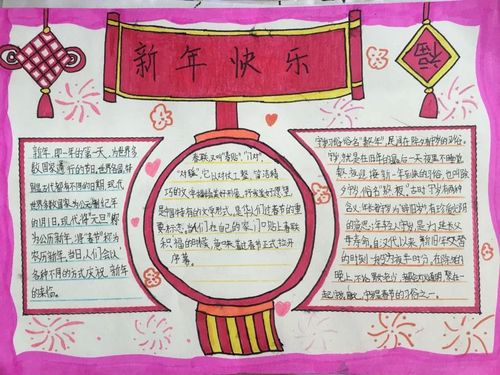 新年快乐
福
新年,即一年的第一天,为世界多
数国家通行的节日,世界各国,特
别是古代都有不同的日期,现代
世界多数国家为公元制纪年
的1月1日,现代将"元旦"称
为公历新年,将"春节"称为
农历新年,当日,人们会以
各种不同的方式庆祝新年
的来临。
春联又叫"春贴","门对",
"对联",它以对仗工整,简洁精
巧的文字描绘美好形象,抒发美好愿望,
是中国特有的文学形式,是华人们过春节的重
要标志,当人们在自己的家门口贴上春联
和福的时候,意味着过春节正式拉开
序幕。
守岁习俗俗名"熬年",民间有除夕守岁的习俗。
守岁,就是在旧年的最后一天夜里不睡觉
熬夜迎接新一年到来的习俗,也叫除
夕守岁,俗名"熬夜"古时守岁有两种
含义:年长者守岁为"辞旧岁",有珍爱光阴
的意思;年轻人守岁,是为延长父
母寿命,自汉代以来,新旧年交替
的时刻一般为夜半时分,在除夕的
晚上,不论男女老少,都会灯火通明,聚在一
起守岁,守岁是春节的习俗之一。